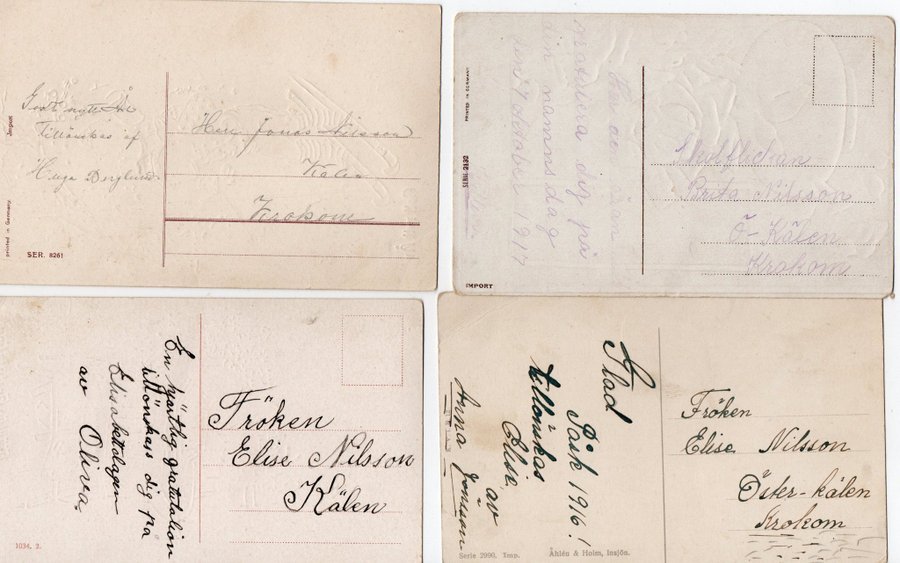 Import
printed in Germany.
Godt nytt År
Tillönskas af
Hugo Berglund
SER. 8261
Herr Jonas Nilsson
Kälen
Krokom
PRINTED IN GERMANY
SERIE 2132
IMPORT
gratulera dig på
din namnsdag
den Oktober 1917
Brita Nilsson
Ö-Kälen
Krokom
En hjärtlig gratulation
tillönskas dig på
Elisabetsdagen
av Oliva.
1034. 2.
Fröken
Elise Nilsson
Kälen
Glad
Påsk 1916!
tillönskas
Elise
av
Anna Jonsson
Serie 2990. Imp.
Åhlén & Holm, Insjön.
Fröken
Elise Nilsson
Öster-kälen
Krokom